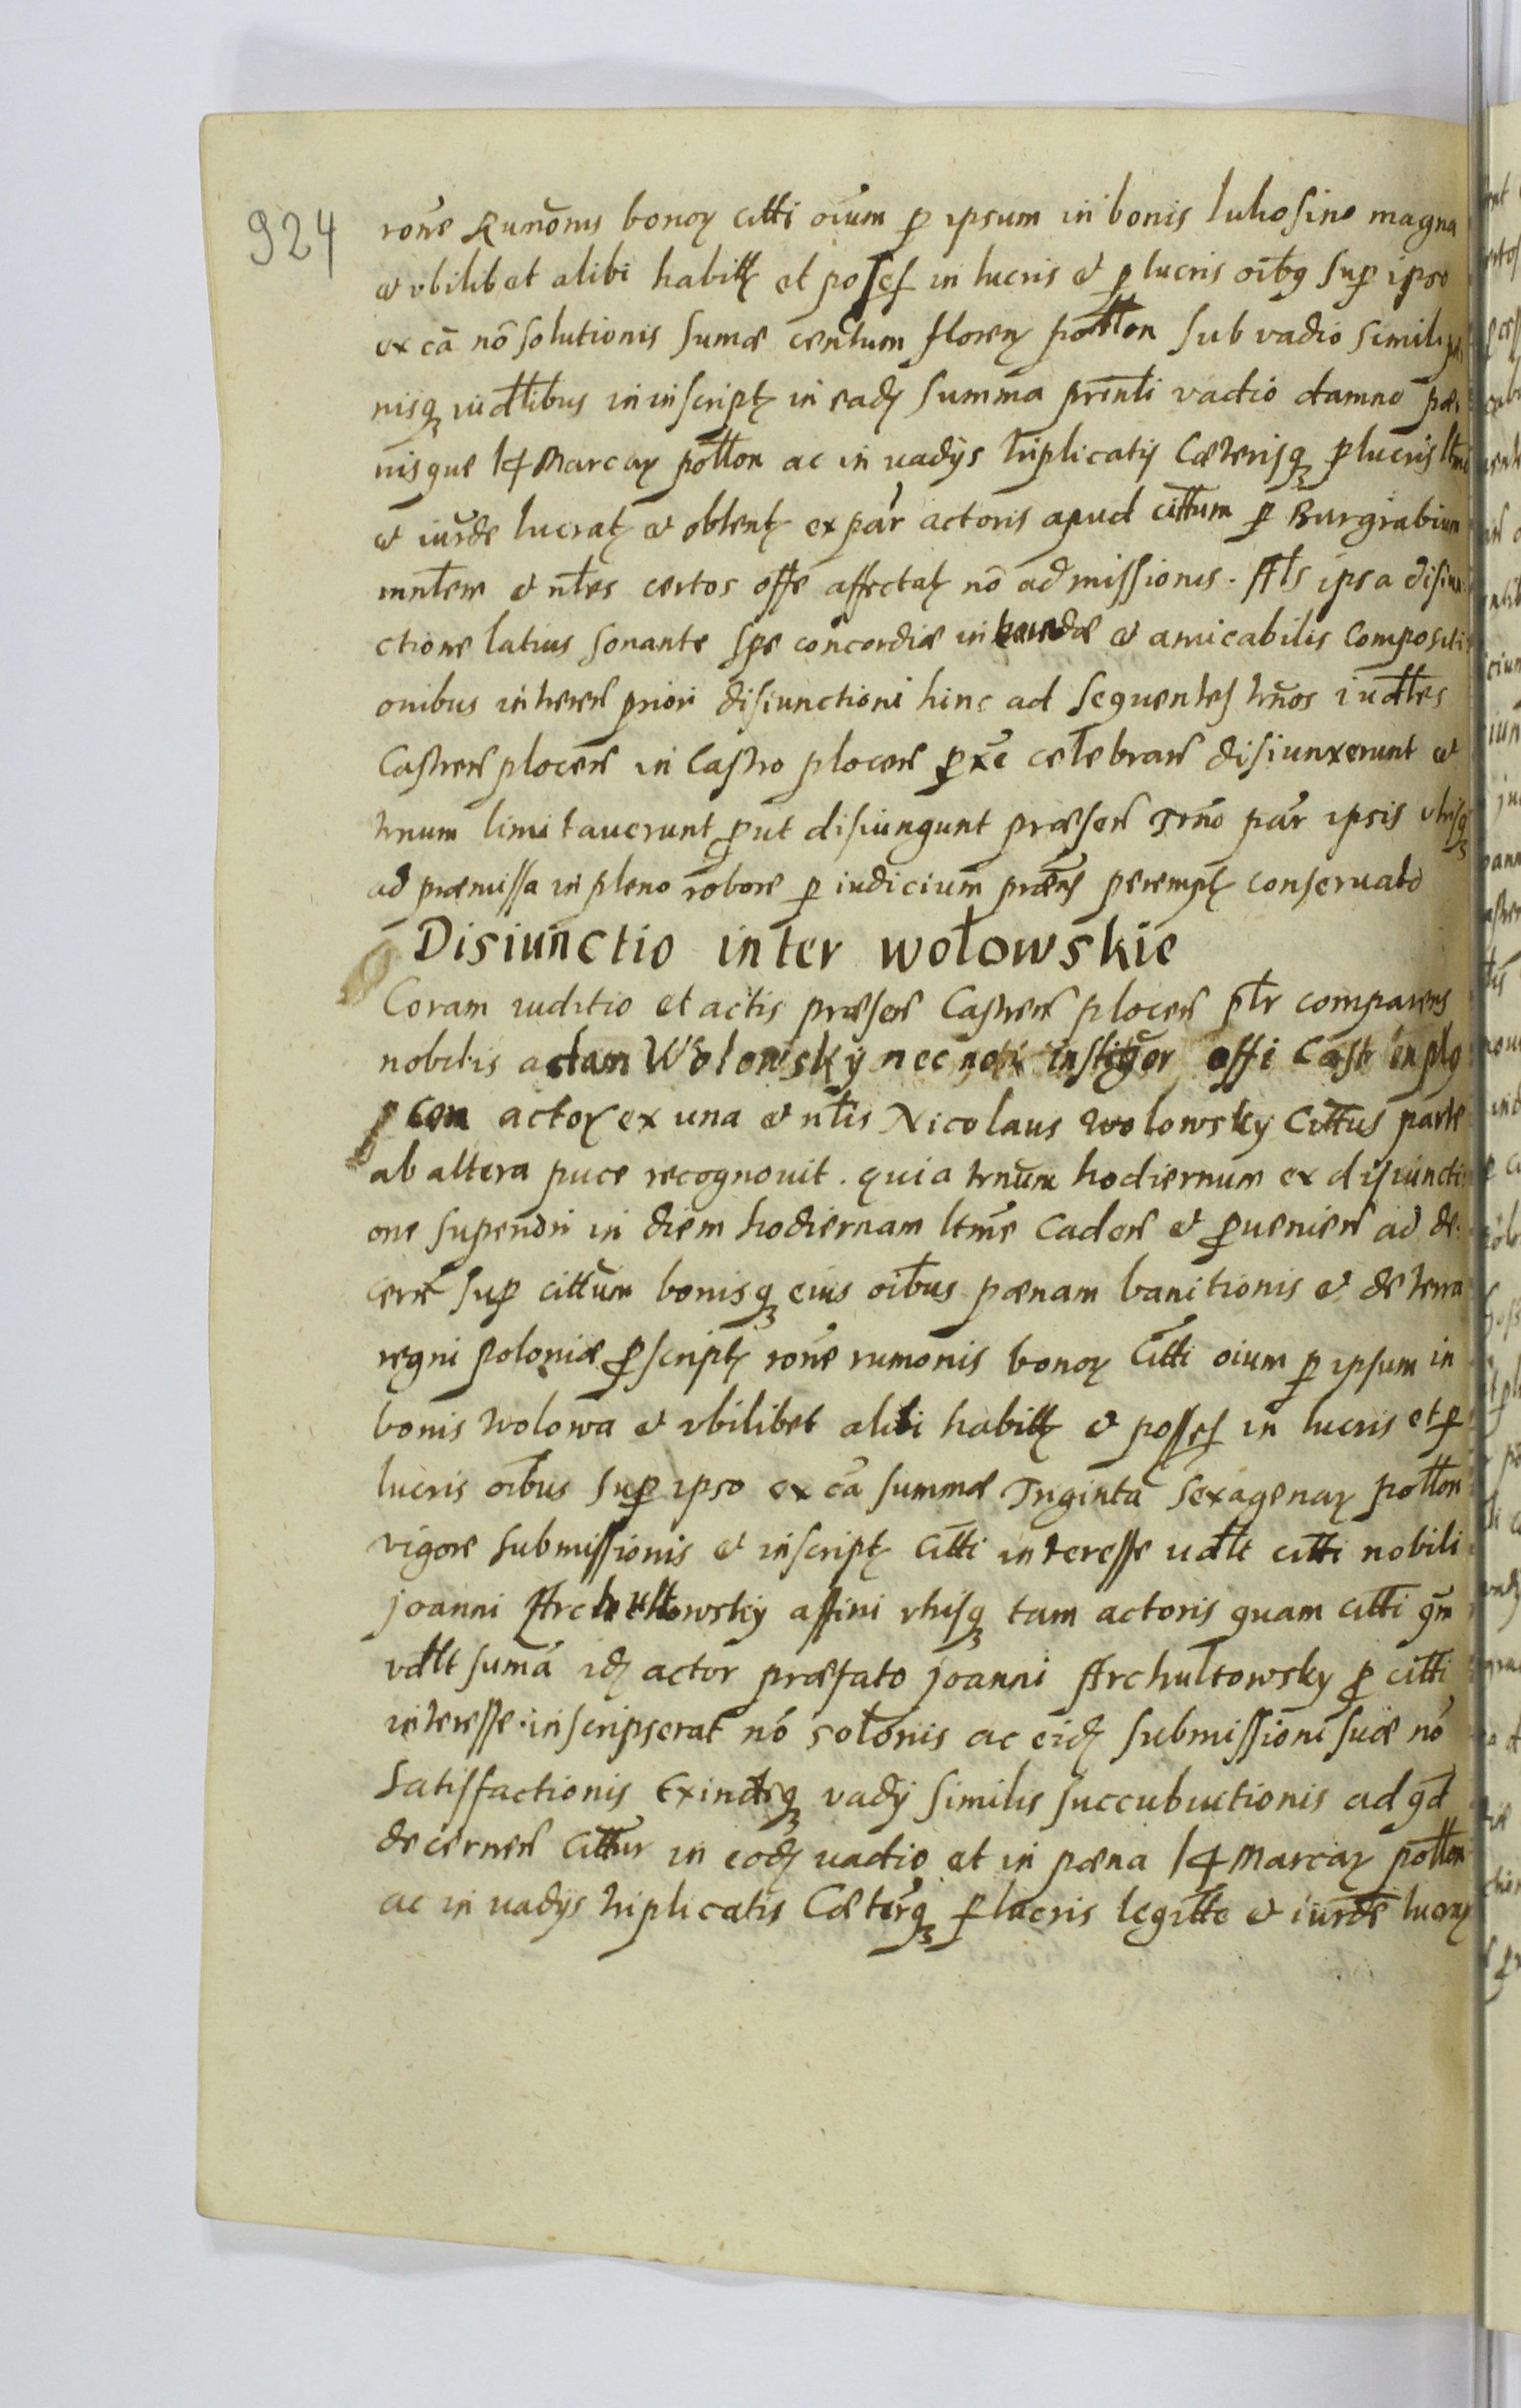 924
rõne Rumõnis bonoꝝ citti oĩum ꝑ ipsum in bonis luhosino magna
et vbilibet alibi habitꝫ et posẽs in lucris et ꝑlucris oĩbꝫ Sup ipso
ex cã nõ solutionis Sumæ centum florenꝫ potlon Sub vadio simili
nisqꝫ iudłibus in inscriptꝫ in eadꝫ Summa prĩnti vadio damno pæ
nisque 14 Marcaꝝ potlon ac in vadijs triplicatis Cæterisqꝫ ꝑlucris ltme
et iurde lucratꝫ et obtentꝫ ex par actoris apud cittum ꝑ Burgrabium
mntem et ntes certos offe affectatꝫ nõ admissionis. Als ipsa disiun
ctione latius sonante spe concordiæ ineundæ et amicabilis Compositi
onibus inheren priori disiunctioni hinc ad Sequentes trños iudłes
Castren plocen in Castro plocen ꝓxe celebran disiunxerunt et
trnum limitauerunt ꝓut disiungunt præsen Trño par ipsis vtrisqꝫ
ad præmissa in pleno robore ꝑ iudicium præns peremptꝫ conseruato
Disiunctio inter wołowskie
Coram iuditio et actis præsen Castren plocen ptr comparens
nobilis adam Wolowsky nec non instigor offi Castr in plo
cen actoꝝ ex una et ntis Nicolaus Wolowsky Cittus parte
ab altera puce recognouit. quia trnum hodiernum ex disiuncti
one supendri in diem hodiernam ltme Caden et ꝓuenien ad de
cern sup cittum bonisqꝫ eius oĩbus pænam banitionis et de terra
regni poloniæ ꝓscriptꝫ rõne rumonis bonoꝝ Citti oĩum ꝑ ipsum in
bonis Wolowa et vbilibet alibi habitꝫ et posses in lucris et ꝑ
lucris oĩbus Sup ipso ex cã summæ Triginta Sexagenaꝝ potlon
vigore Submissionis et inscriptꝫ Citti interesse vdłt citti nobili
Joanni Archultowsky affini vtrisqꝫ tam actoris quam citti qm
vdłt sumã idꝫ actor præfato Joanni Archultowsky ꝑ citti
interesse inscripserat nõ solõnis ac eidꝫ submissioni suæ nõ
Satisfactionis Exindeqꝫ vadij similis succubuitionis ad qd
decernen Cittur in eodꝫ vadio et in pæna 14 Marcaꝝ potlon
ac in vadijs triplicatis Cæterqꝫ ꝑlucris legitte et iurde lucrꝫ